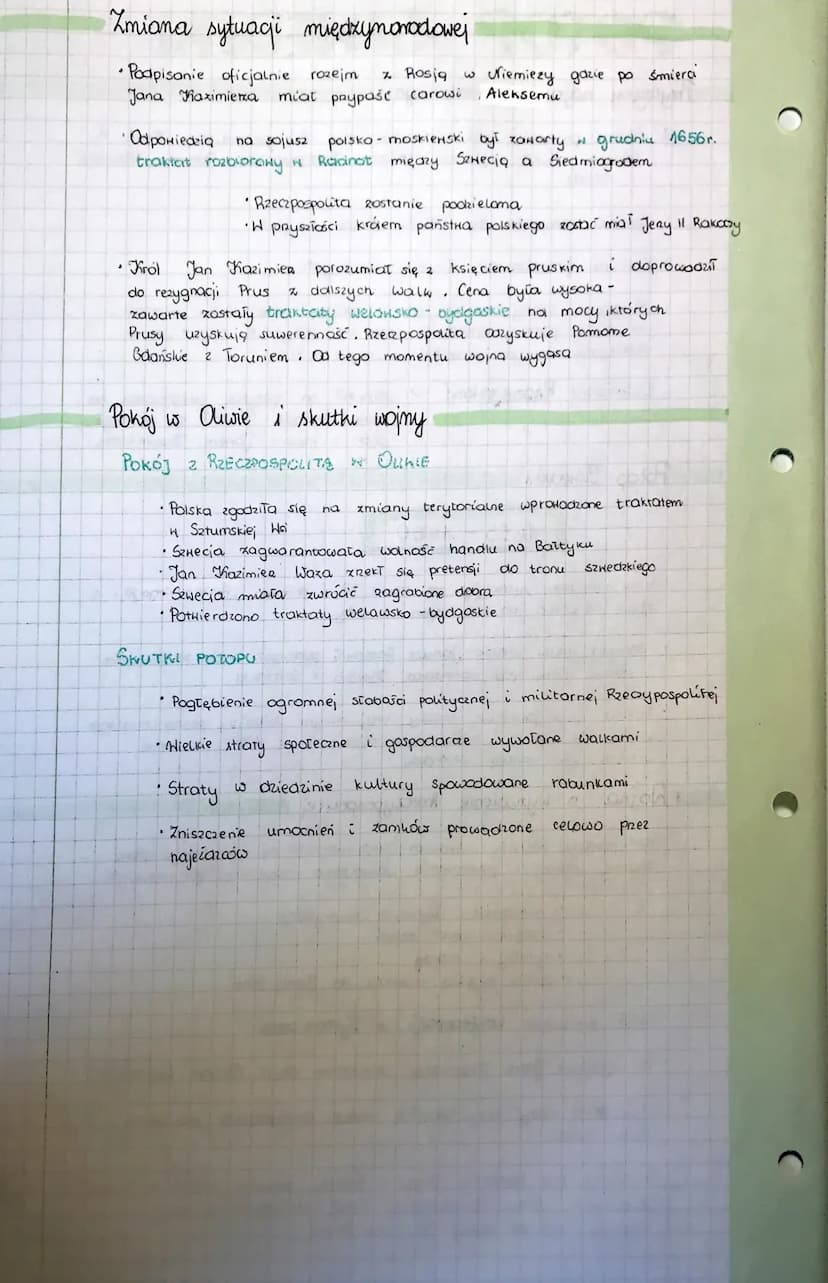 Zmiana sytuacji międzynarodowej
• Podpisanie oficjalnie rozejm z Rosją w Niemieży gdzie po śmierci
Jana Kazimierza miał przypaść carowi Aleksemu
• Odpowiedzią na sojusz polsko-moskiewski był zawarty w grudniu 1656r.
traktat rozbiorowy w Radnot między Szwecją a Siedmiogrodem
• Rzeczpospolita zostanie podzielona
• W przyszłości królem państwa polskiego zostać miał Jerzy II Rakoczy
• Król Jan Kazimierz porozumiał się z księciem pruskim i doprowadził
do rezygnacji Prus z dalszych walk. Cena była wysoka -
zawarte zostały traktaty welawsko - bydgaskie na mocy których
Prusy uzyskują suwerenność. Rzeczpospolita odzyskuje Pomorze
Gdańskie z Toruniem. Od tego momentu wojna wygasa
Pokój w Oliwie i skutki wojny
POKÓJ Z RZECZPOSPOLITĄ W OLIWIE
• Polska zgodziła się na zmiany terytorialne wprowadzone traktatem
w Sztumskiej Wsi
• Szwecja zagwarantowała wolność handlu na Bałtyku
• Jan Kazimierz Waza zrzekł się pretensji do tronu szwedzkiego
• Szwecja miała zwrócić zagrabione dobra
• Potwierdzono traktaty welawsko - bydgoskie
SKUTKI POTOPU
• Pogłębienie ogromnej słabości politycznej i militarnej Rzeczypospolitej
• Wielkie straty społeczne i gospodarcze wywołane walkami
• Straty w dziedzinie kultury spowodowane rabunkami
• Zniszczenie umocnień i zamków prowadzone celowo przez
najeźdźców